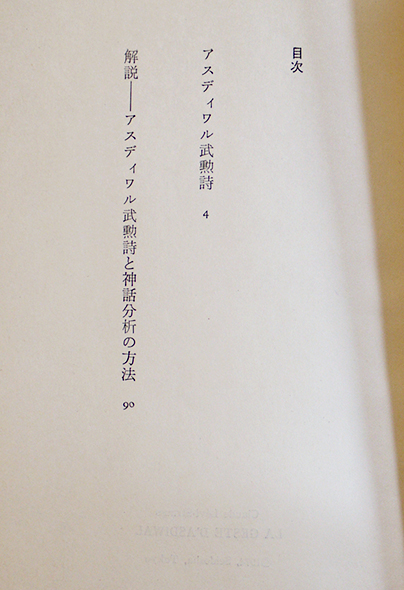 目次
アスディワル武勲詩 4
解説──アスディワル武勲詩と神話分析の方法 90
LA GESTE D'ASDIWAL